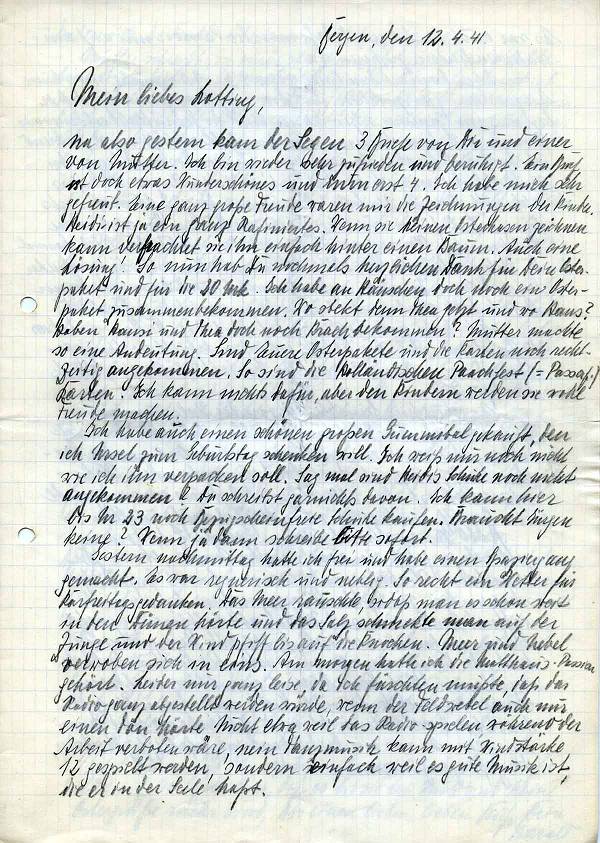 den 12.4.41
Mein liebes Lotting,
na also gestern kam der Segen 3 Briefe von Dir und einer
von Mutter. Ich bin wieder sehr zufrieden und beruhigt. Ein Brief
ist doch etwas Wunderschönes und denn erst 4. Ich habe mich sehr
gefreut. Eine ganz große Freude waren mir die Zeichnungen der Kinder.
Heidi ist ja ein ganz Rafiniertes. Wenn sie keinen Osterhasen zeichnen
kann verfrachtet sie ihn einfach hinter einen Baum. Auch eine
Lösung! So nun hab Du nochmals herzlichen Dank für Dein Oster-
paket und für die 20 Mk. Ich habe an Hänschen doch noch ein Oster-
paket zusammenbekommen. Wo steckt denn Thea jetzt und wo Hans?
Haben Hansi und Thea doch noch Krach bekommen? Mutter machte
so eine Andeutung. Sind Euere Osterpakete und die Karten noch recht-
zeitig angekommen. So sind die holländischen Paachfest
Karten! Ich kann nichts dafür, aber den Kindern werden sie viel
Freude machen.
Ich habe auch einen schönen großen gekauft, den
ich Ursel zum Geburtstag schenken will. Ich weiß nur noch nicht
wie ich ihn verpacken soll. Sag mal sind Heidis Schuhe noch nicht
angekommen? Du schreibst garnichts davon. Ich kann hier
bis Nr 23 noch bezugscheinfreie Schuhe kaufen. Braucht
keine? Wenn ja dann schreibe bitte sofort.
Gestern nachmittag hatte ich frei und habe einen Spaziergang
gemacht. Es war regnerisch und neblig. So recht ein Wetter für
Karfreitagsgedanken. Das Meer rauschte, man es schon weit
in den Dünen hörte und das Salz schmeckte man auf der
Zunge und der Wind pfiff bis auf die Knochen. Meer und Nebel
verwoben sich in eins. Am morgen hatte ich die Matthäus-Passion
gehört. Leider nur ganz leise, da ich fürchten mußte, daß das
Radio ganz abgestellt werden würde, wenn der Feldwebel auch nur
einen Ton hörte. Nicht etwa weil das Radio spielen während der
Arbeit verboten wäre, nein Tanzmusik kann mit Windstärke
12 gespielt werden, sondern einfach weil es gute Musik ist,
die er in der Seele haßt.